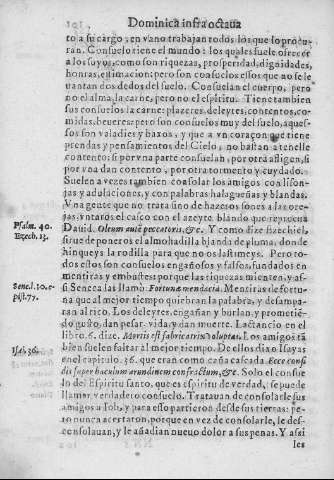 Dominica infra octaua
to a su cargo, en vano trabajan todos los que lo procu-
ran. Consuelo tiene el mundo: los quales suele ofrecer
a los suyos, como son riquezas, prosperidad, dignidades,
honras, estimacion: pero son consuelos ellos que no se le
uantan dos dedos del suelo. Consuelan el cuerpo, pero
no el alma, la carne, pero no el espiritu. Tiene tambien
sus consuelos la carne: plazeres, deleytes, contentos, co-
midas, beueres: pero son consuelos muy del suelo, aques-
sos son valadies y baxos, y que a vn coraçon que tiene
prendas y pensamientos del Cielo, no bastan a tenelle
contento: si por vna parte consuelan, por otra afligen, si
por vna dan contento, por otra tormento y cuydado.
Suelen a vezes tambien consolar los amigos con lison-
jas y adulaciones, y con palabras halagueñas y blandas.
Vna gente que no trata sino de hazer
untaros el casco con el azeyte blando que reprueua
Psalm. 40.
Dauid. Oleum autẽ peccatoris, &c. Y como dize Ezechiel,
Ezech. 13.
sirue de poneros el almohadilla blanda de pluma, donde
hinqueys la rodilla para que no os lastimeys. Pero to-
dos estos son consuelos engañosos y falsos, fundados en
mentiras y embustes porque las riquezas mienten, y as-
Senec. l. 10. e-
si Seneca las llamò Fortunæ mendacia. Mentiras de fortu-
pist. 77.
na que al mejor tiempo quiebran la palabra, y desampa-
ran al rico. Los deleytes, engañan y burlan, y prometiẽ-
do gusto, dan pesar, vida, y dan muerte. Lactancio en el
libro. 6. dize. Mortis est fabricatrix voluptas. Los amigos tã
Isai. 36.
bien suelen faltar al mejor tiempo. De ellos dixo Isayas
en el capitulo. 36. que eran como caña cascada. Ecce confi
dis super baculum arundineum confractum, &c. Solo el consue
lo del Espiritu santo, que es espiritu de verdad, se puede
llamar verdadero consuelo. Tratauan de consolarle sus
amigos a Iob, y para esso partieron desde sus tierras: pe-
ro nunca acertaron, porque en vez de consolarle, le des-
consolauan, y le añadian nueuo dolor a sus penas. Y assi
les